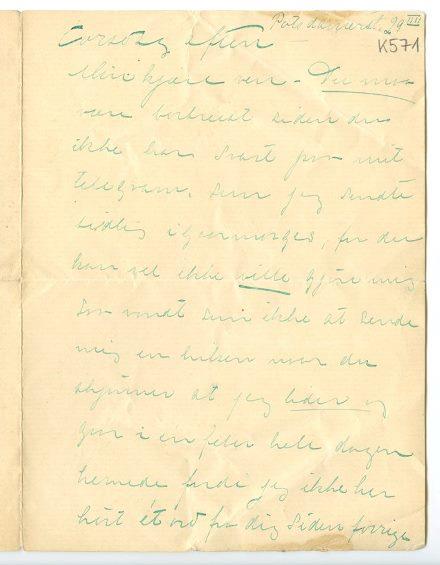 Potsdamerst. 29 III
K571
Torsdag aften
Min kjære ven – Du maa
være bortreist siden du
ikke har svart paa mit
telegram, som jeg sendte
igaarmorges, for du
kan vel ikke ville gjøre mig
saa vondt som ikke at sende
mig en hilsen naar du
skjønner at jeg lider og
gaar i én feber hele dagen
hernede fordi jeg ikke har
hørt ét ord fra dig siden forrige